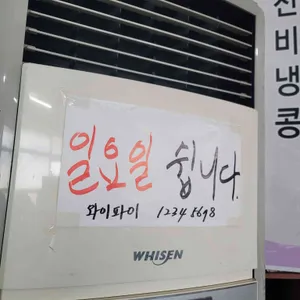 일요일 쉽니다.
와이파이 12345698
WHISEN
전비냉콩